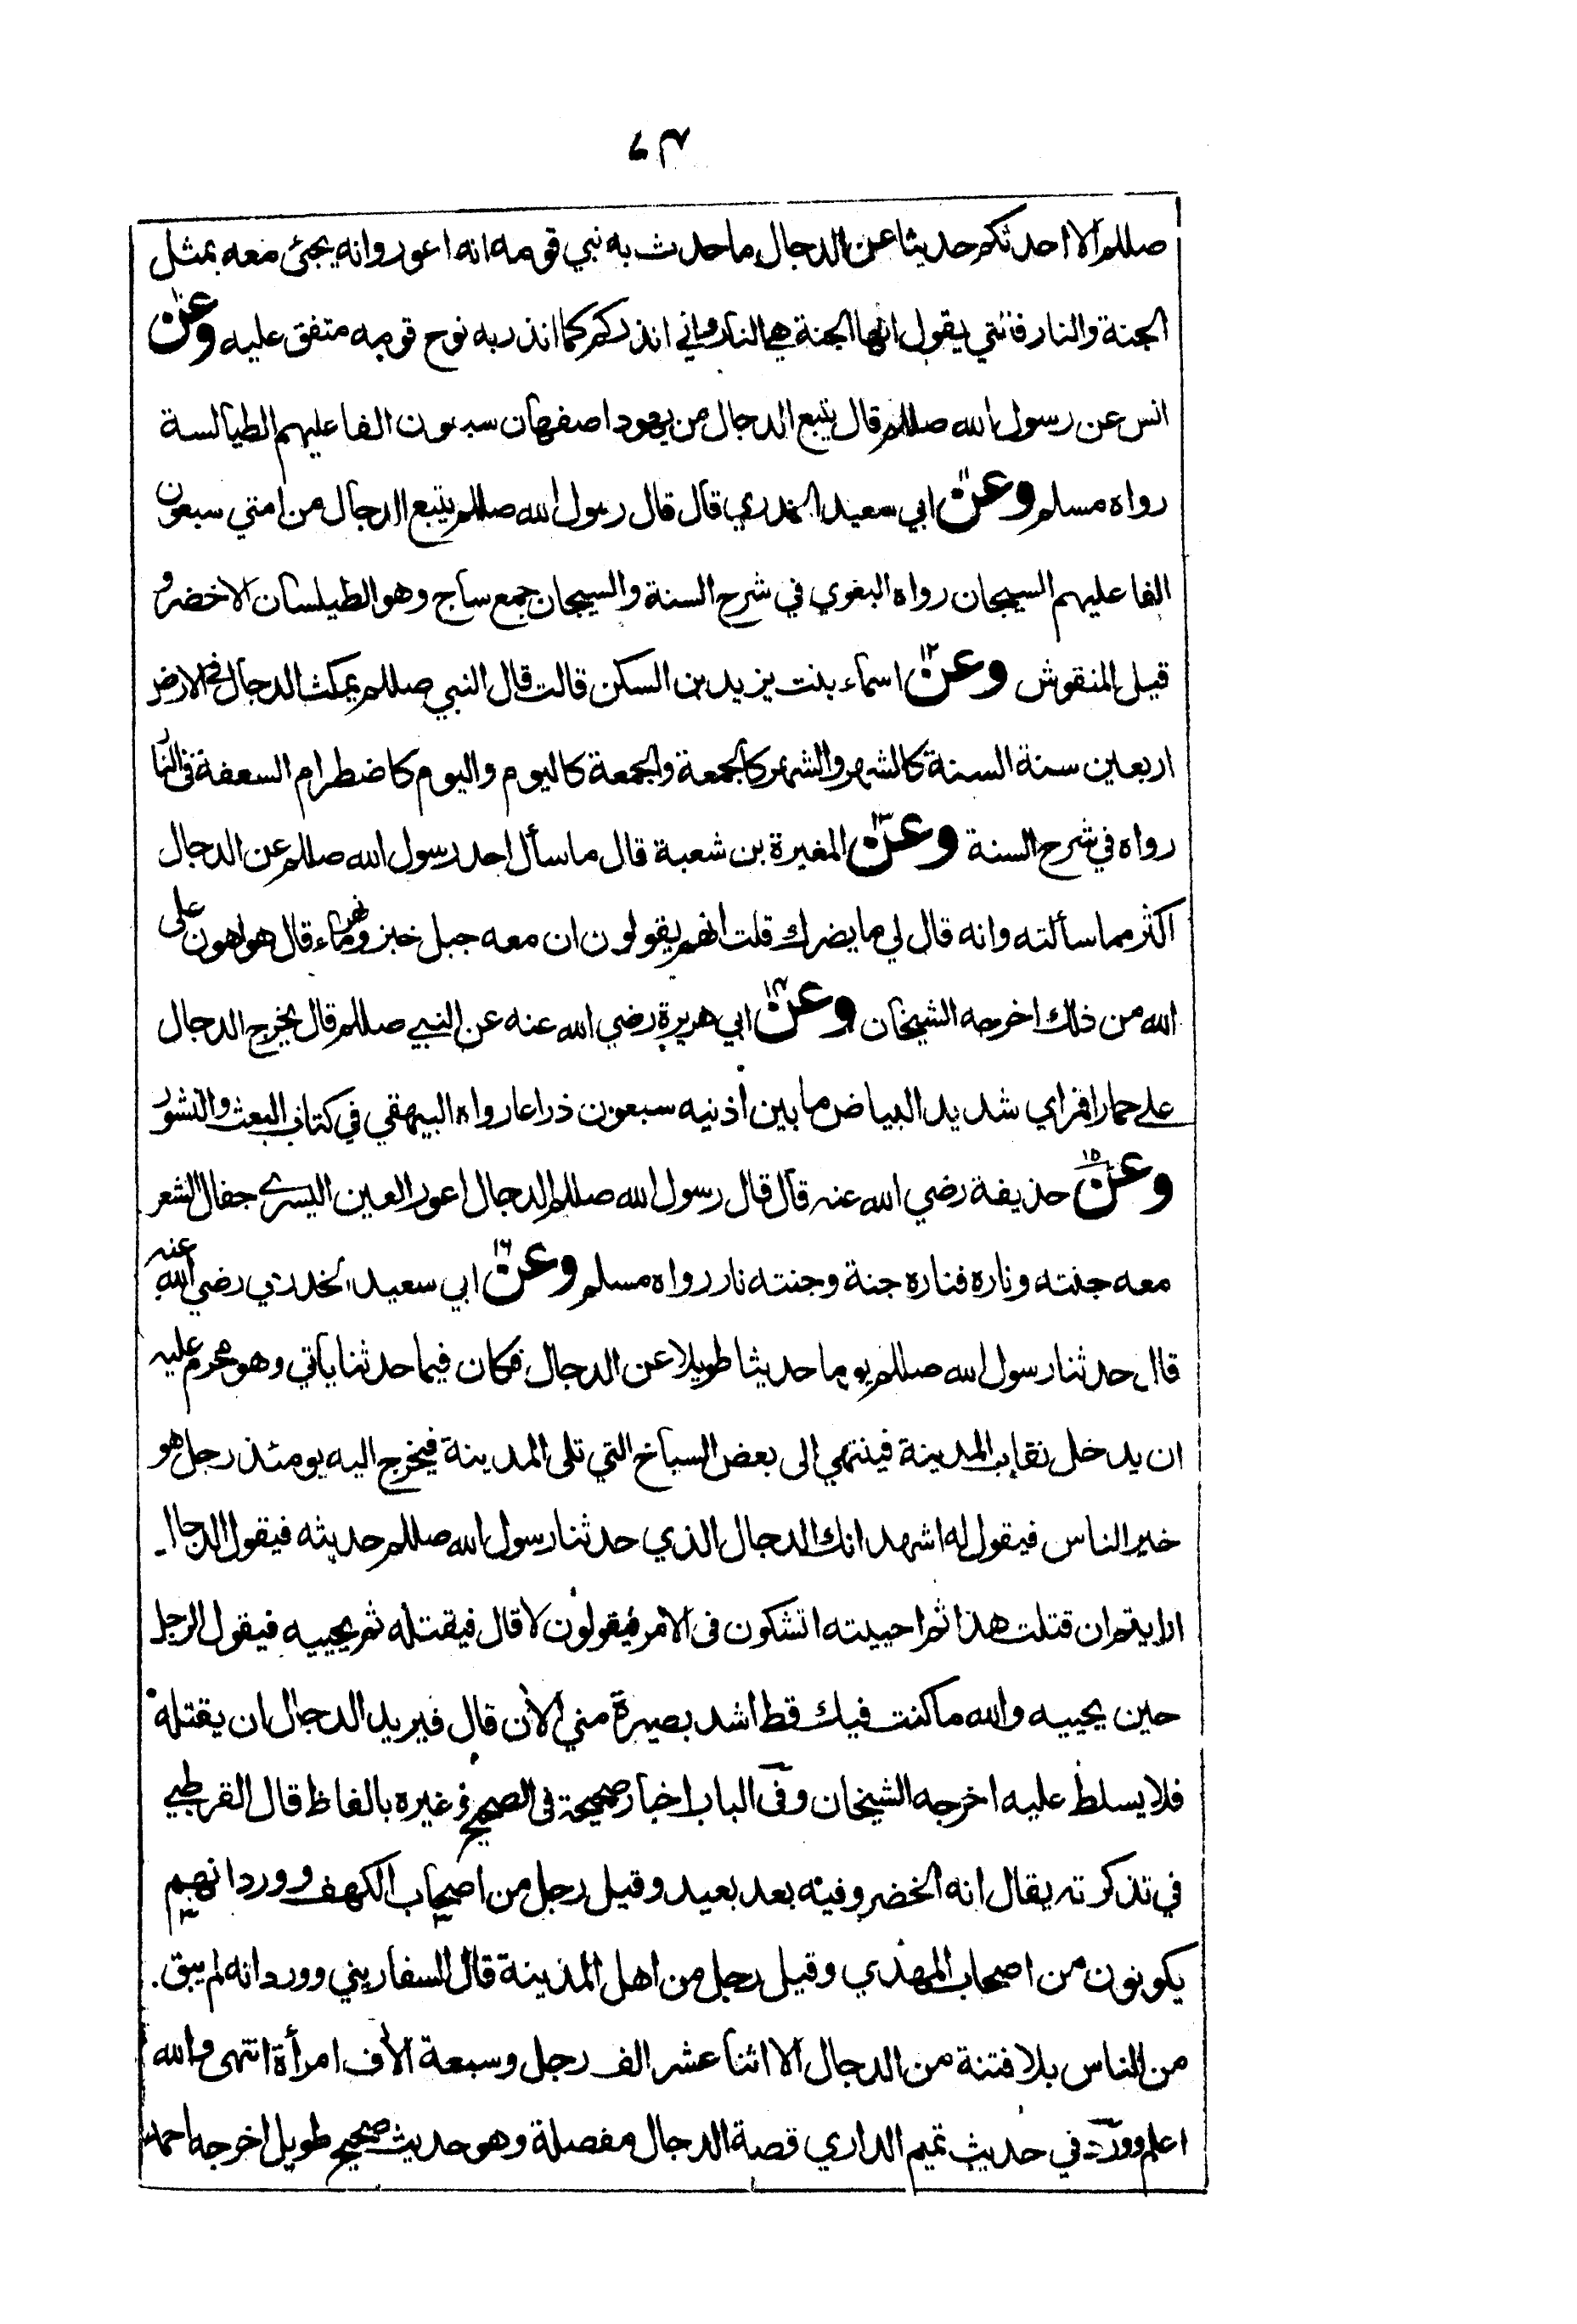 ٤٦
صللم الا احدثكم حديثا عن الدجال ما حدث به نبي قومه انه اعور وانه يجئ معه بمثل
الجنة والنار فالتي يقول انها الجنة هي النار واني انذركم كما انذر به نوح قومه متفق عليه وعن١٠
انس عن رسول الله صللم قال يتبع الدجال من يهود اصفهان سبعون الفا عليهم الطيالسة
رواه مسلم وعن١١ ابي سعيد الخدري قال قال رسول الله صللم يتبع الدجال من امتي سبعون
الفا عليهم السيجان رواه البغوي في شرح السنة والسيجان جمع ساج وهو الطيلسان الاخضر و
قيل المنقوش وعن١٢ اسماء بنت يزيد بن السكن قالت قال النبي صللم يمكث الدجال في الارض
اربعين سنة السنة كالشهر والشهر كالجمعة والجمعة كاليوم واليوم كاضطرام السعفة في النار
رواه في شرح السنة وعن١٣ المغيرة بن شعبة قال ما سأل احد رسول الله صللم عن الدجال
اكثر مما سألته وانه قال لي ما يضرك قلت انهم يقولون ان معه جبل خبز ونهر ماء قال هو اهون على
الله من ذلك اخرجه الشيخان وعن١٤ ابي هريرة رضي الله عنه عن النبي صللم قال يخرج الدجال
على حمار اقمر اي شديد البياض ما بين أذنيه سبعون ذراعا رواه البيهقي في كتاب البعث والنشور
وعن١٥ حذيفة رضي الله عنه قال قال رسول الله صللم الدجال اعور العين اليسرى جفال الشعر
معه جنته وناره فناره جنة وجنته نار رواه مسلم وعن١٦ ابي سعيد الخدري رضي الله عنه
قال حدثنا رسول الله صللم يوما حديثا طويلا عن الدجال فكان فيما حدثنا يأتي وهو محرم عليه
ان يدخل نقاب المدينة فينتهي الى بعض السباخ التي تلى المدينة فيخرج اليه يومئذ رجل هو
خير الناس فيقول له اشهد انك الدجال الذي حدثنا رسول الله صللم حديثه فيقول الدجال
ارايتم ان قتلت هذا ثم احييته اتشكون فى الامر فيقولون لا قال فيقتله ثم يحييه فيقول الرجل
حين يحييه والله ما كنت فيك قط اشد بصيرة مني الأن قال فيريد الدجال ان يقتله
فلا يسلط عليه اخرجه الشيخان وفى الباب اخبار صحيحة فى الصحيح وغيره بالفاظ قال القرطبي
في تذكرته يقال انه الخضر وفيه بعد بعيد وقيل رجل من اصحاب الكهف وورد انهم
يكونون من اصحاب المهدي وقيل رجل من اهل المدينة قال السفاريني وورد انه لم يبق
من الناس بلا فتنة من الدجال الا اثنا عشر الف رجل وسبعة الاف امرأة انتهى والله
اعلم وورد في حديث تميم الداري قصة الدجال مفصلة وهو حديث صحيح طويل اخرجه احمد